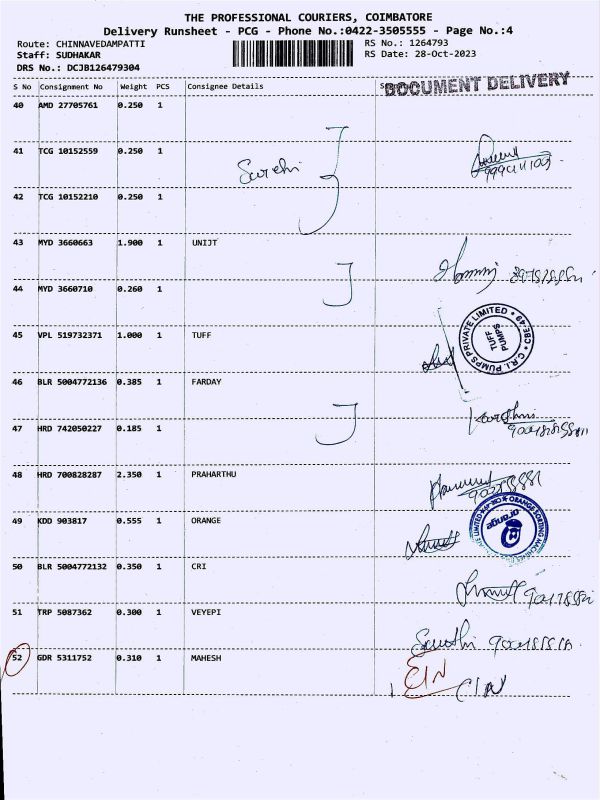 THE PROFESSIONAL COURIERS, COIMBATORE
Delivery Runsheet - PCG - Phone No.:0422-3505555 - Page No.:4
Route: CHINNAVEDAMPATTI RS No.: 1264793
Staff: SUDHAKAR RS Date: 28-Oct-2023
DRS No.: DCJB126479304
S No Consignment No Weight PCS Consignee Details
DOCUMENT DELIVERY
40 AMD 27705761 0.250 1
41 TCG 10152559 0.250 1
42 TCG 10152210 0.250 1
43 MYD 3660663 1.900 1 UNIJT
44 MYD 3660710 0.260 1
45 VPL 519732371 1.000 1 TUFF
C.R.I. PUMPS PRIVATE LIMITED CBE-49
TUFF
PUMPS
46 BLR 5004772136 0.385 1 FARDAY
47 HRD 742050227 0.185 1
48 HRD 700828287 2.350 1 PRAHARTHU
49 KDD 903817 0.555 1 ORANGE
orange
50 BLR 5004772132 0.350 1 CRI
51 TRP 5087362 0.300 1 VEYEPI
52 GDR 5311752 0.310 1 MAHESH